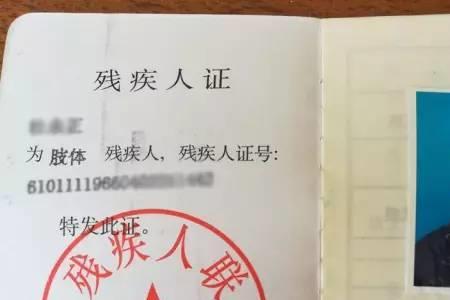 残疾人证
为 肢体 残疾人，残疾人证号：
特发此证。
残疾人联